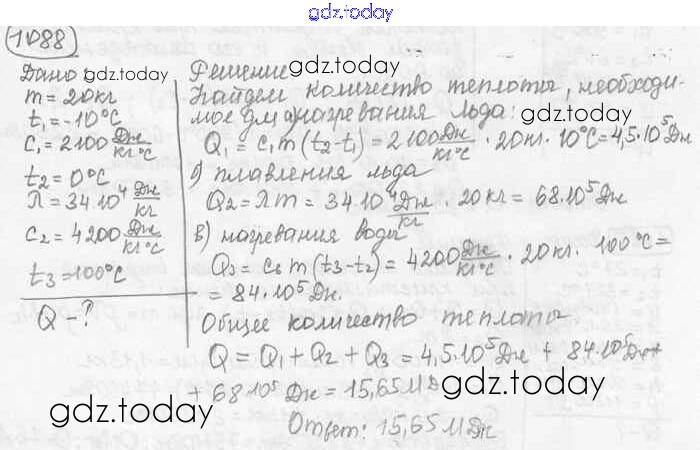 gdz.today
1088
Дано gdz.today
m = 20 кг
t₁ = -10°C
c₁ = 2100 Дж/кг°C
t₂ = 0°C
λ = 34·10⁴ Дж/кг
c₂ = 4200 Дж/кг°C
t₃ = 100°C
Q - ?
Решение
gdz.today
Найдем количество теплоты, необходи-
мое для а) нагревания льда:
Q₁ = c₁m(t₂-t₁) = 2100 Дж/кг°C · 20кг · 10°C = 4,5·10⁵ Дж
б) плавления льда
Q₂ = λm = 34·10⁴ Дж/кг · 20 кг = 68·10⁵ Дж
в) нагревания воды
Q₃ = cв m(t₃-t₂) = 4200 Дж/кг°C · 20 кг · 100°C =
= 84·10⁵ Дж.
Общее количество теплоты
Q = Q₁ + Q₂ + Q₃ = 4,5·10⁵ Дж + 84·10⁵ Дж +
+ 68·10⁵ Дж = 15,65 М
gdz.today
gdz.today
Ответ: 15,65 МДж